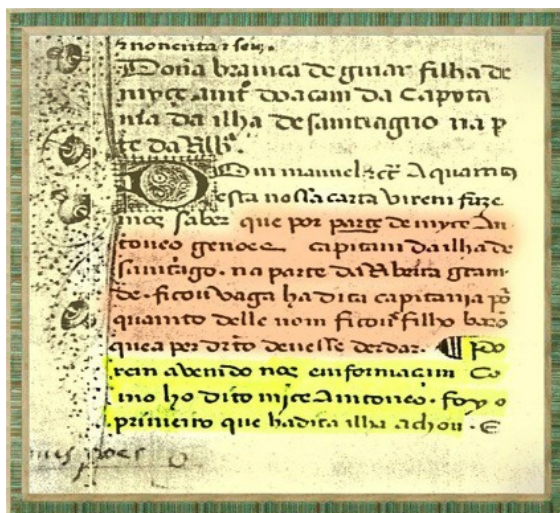 ⁊ nouenta ⁊ seis.
Dona branca de guiar filha de
myce antº doacam da Capita
nia da ilha de santiagno na p
te da Rib.
Dom manuel ⁊cᵗ A quantos
esta nossa carta virem faze
mos saber que por parte de myce An
toneo genoes capitam da ilha de
santiago. na parte da Ribeira gram
de. ficou vaga ha dita capitania pº
quanto delle nom ficou filho baro
que a per drto deuesse derdar. po
rem avendo nos emformacim Co
mo ho dito myce Antoneo. foy o
primeiro que ha dita ilha achou. E